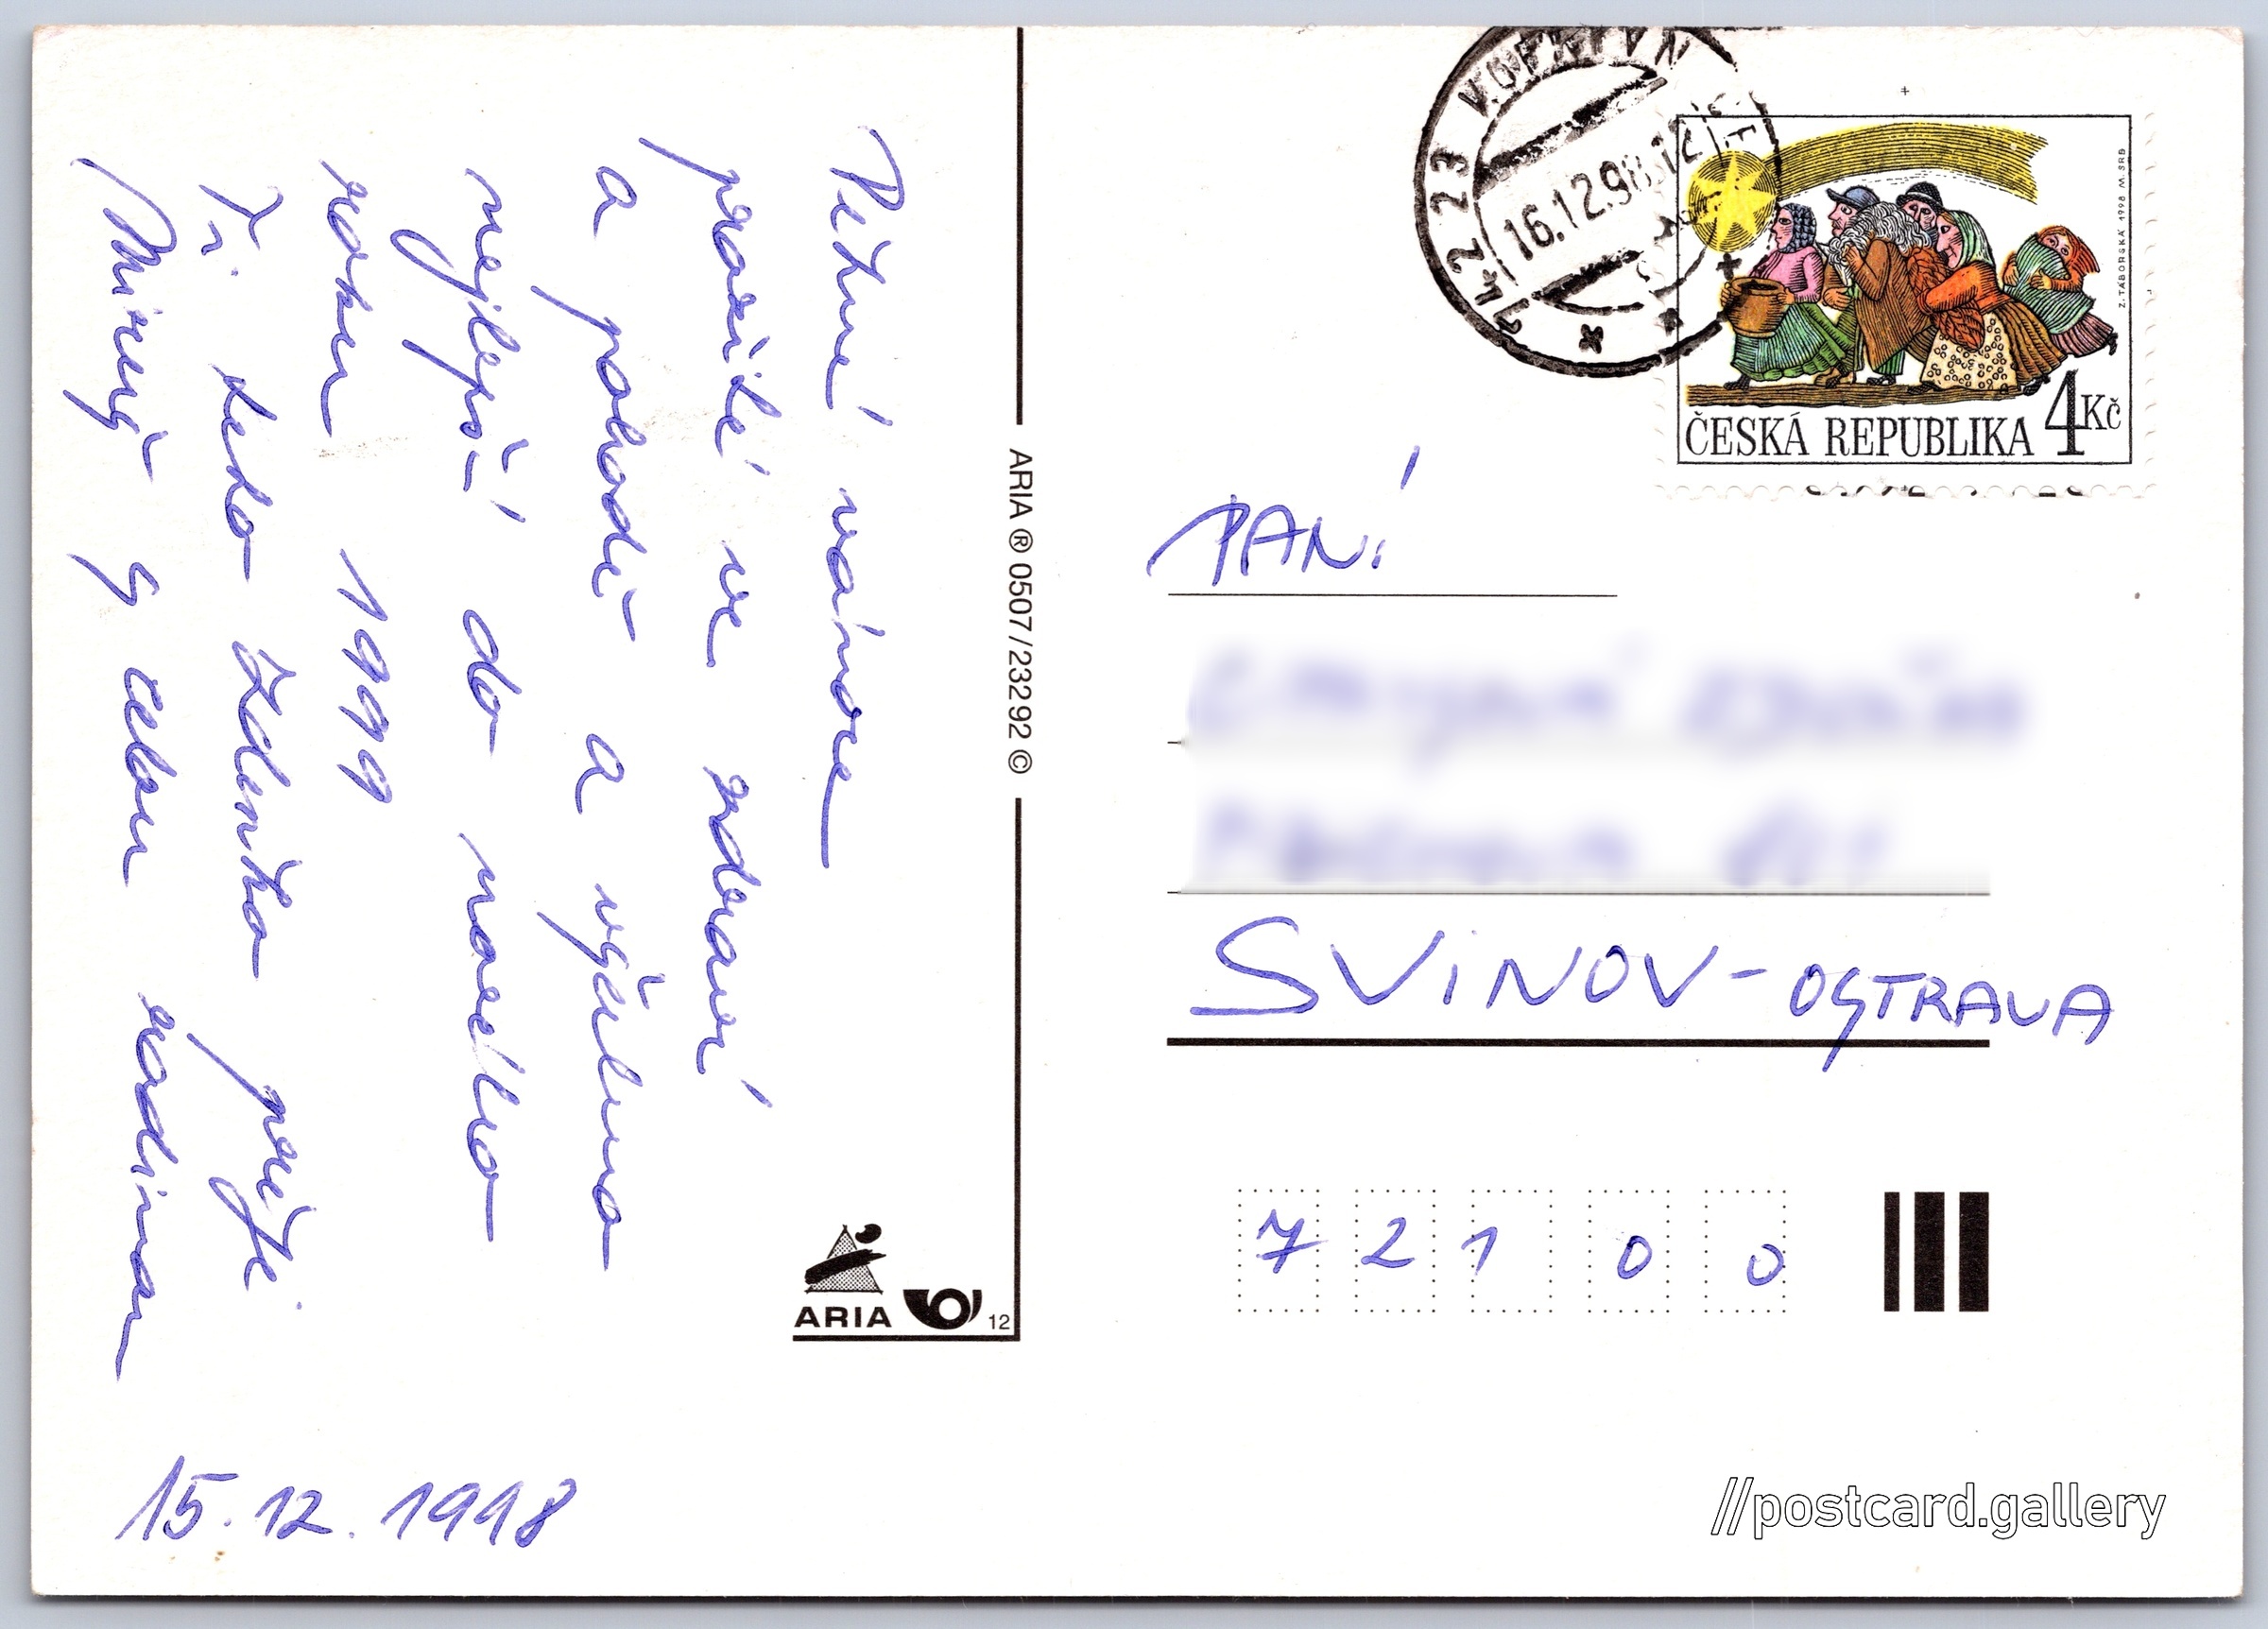 Pěkné vánoce
prožité ve zdraví
a pohodě a všechno
nejlepší do nového
roku 1999
Ti teto Zdeničko přeje
Mireč s celou rodinou
15.12.1998
ARIA ® 0507/23292 ©
ARIA
12
742 23
16.12.98
Z. TÁBORSKÁ 1998 M. SRB
ČESKÁ REPUBLIKA 4Kč
PANÍ
SVINOV-OSTRAVA
721 00
//postcard.gallery